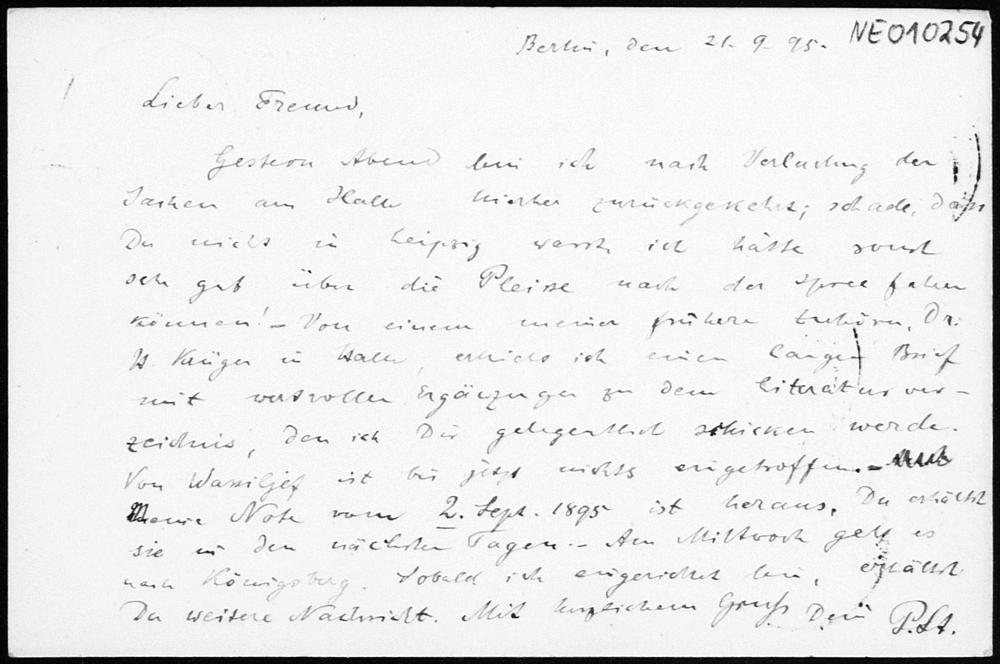 NE010254
Berlin, den 21. 9. 95.
Lieber Freund,
Gestern Abend bin ich nach Verladung der
Sachen aus Halle hierher zurückgekehrt; schade, dass
Du nicht in Leipzig warst ich hätte sonst
sehr gut über die Pleisse nach der Spree fahren
können! - Von einem meiner früheren Zuhörer, Dr.
Krüger in Halle, erhielt ich einen langen Brief
mit wertvollen Ergänzungen zu dem Literaturver-
zeichnis, den ich Dir gelegentlich schicken werde.
Von Wassiljef ist bis jetzt nichts eingetroffen. -
Meine Note vom 2. Sept. 1895 ist heraus. Du erhältst
sie in den nächsten Tagen. - Am Mittwoch geht es
nach Königsberg. Sobald ich eingerichtet bin, erhältst
Du weitere Nachricht. Mit herzlichem Gruss Dein P. St.